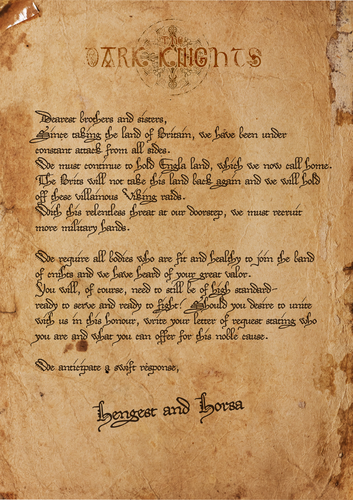 THE
DARK KNIGHTS
Dearest brothers and sisters,
Since taking the land of Britain, we have been under
constant attack from all sides.
We must continue to hold Engla land, which we now call home.
The Brits will not take this land back again and we will hold
off these villainous Viking raids.
With this relentless threat at our doorstep, we must recruit
more military hands.
We require all bodies who are fit and healthy to join the band
of cnihts and we have heard of your great valor.
You will, of course, need to still be of high standard-
ready to serve and ready to fight! Should you desire to unite
with us in this honour, write your letter of request stating who
you are and what you can offer for this noble cause.
We anticipate a swift response,
Hengest and Horsa